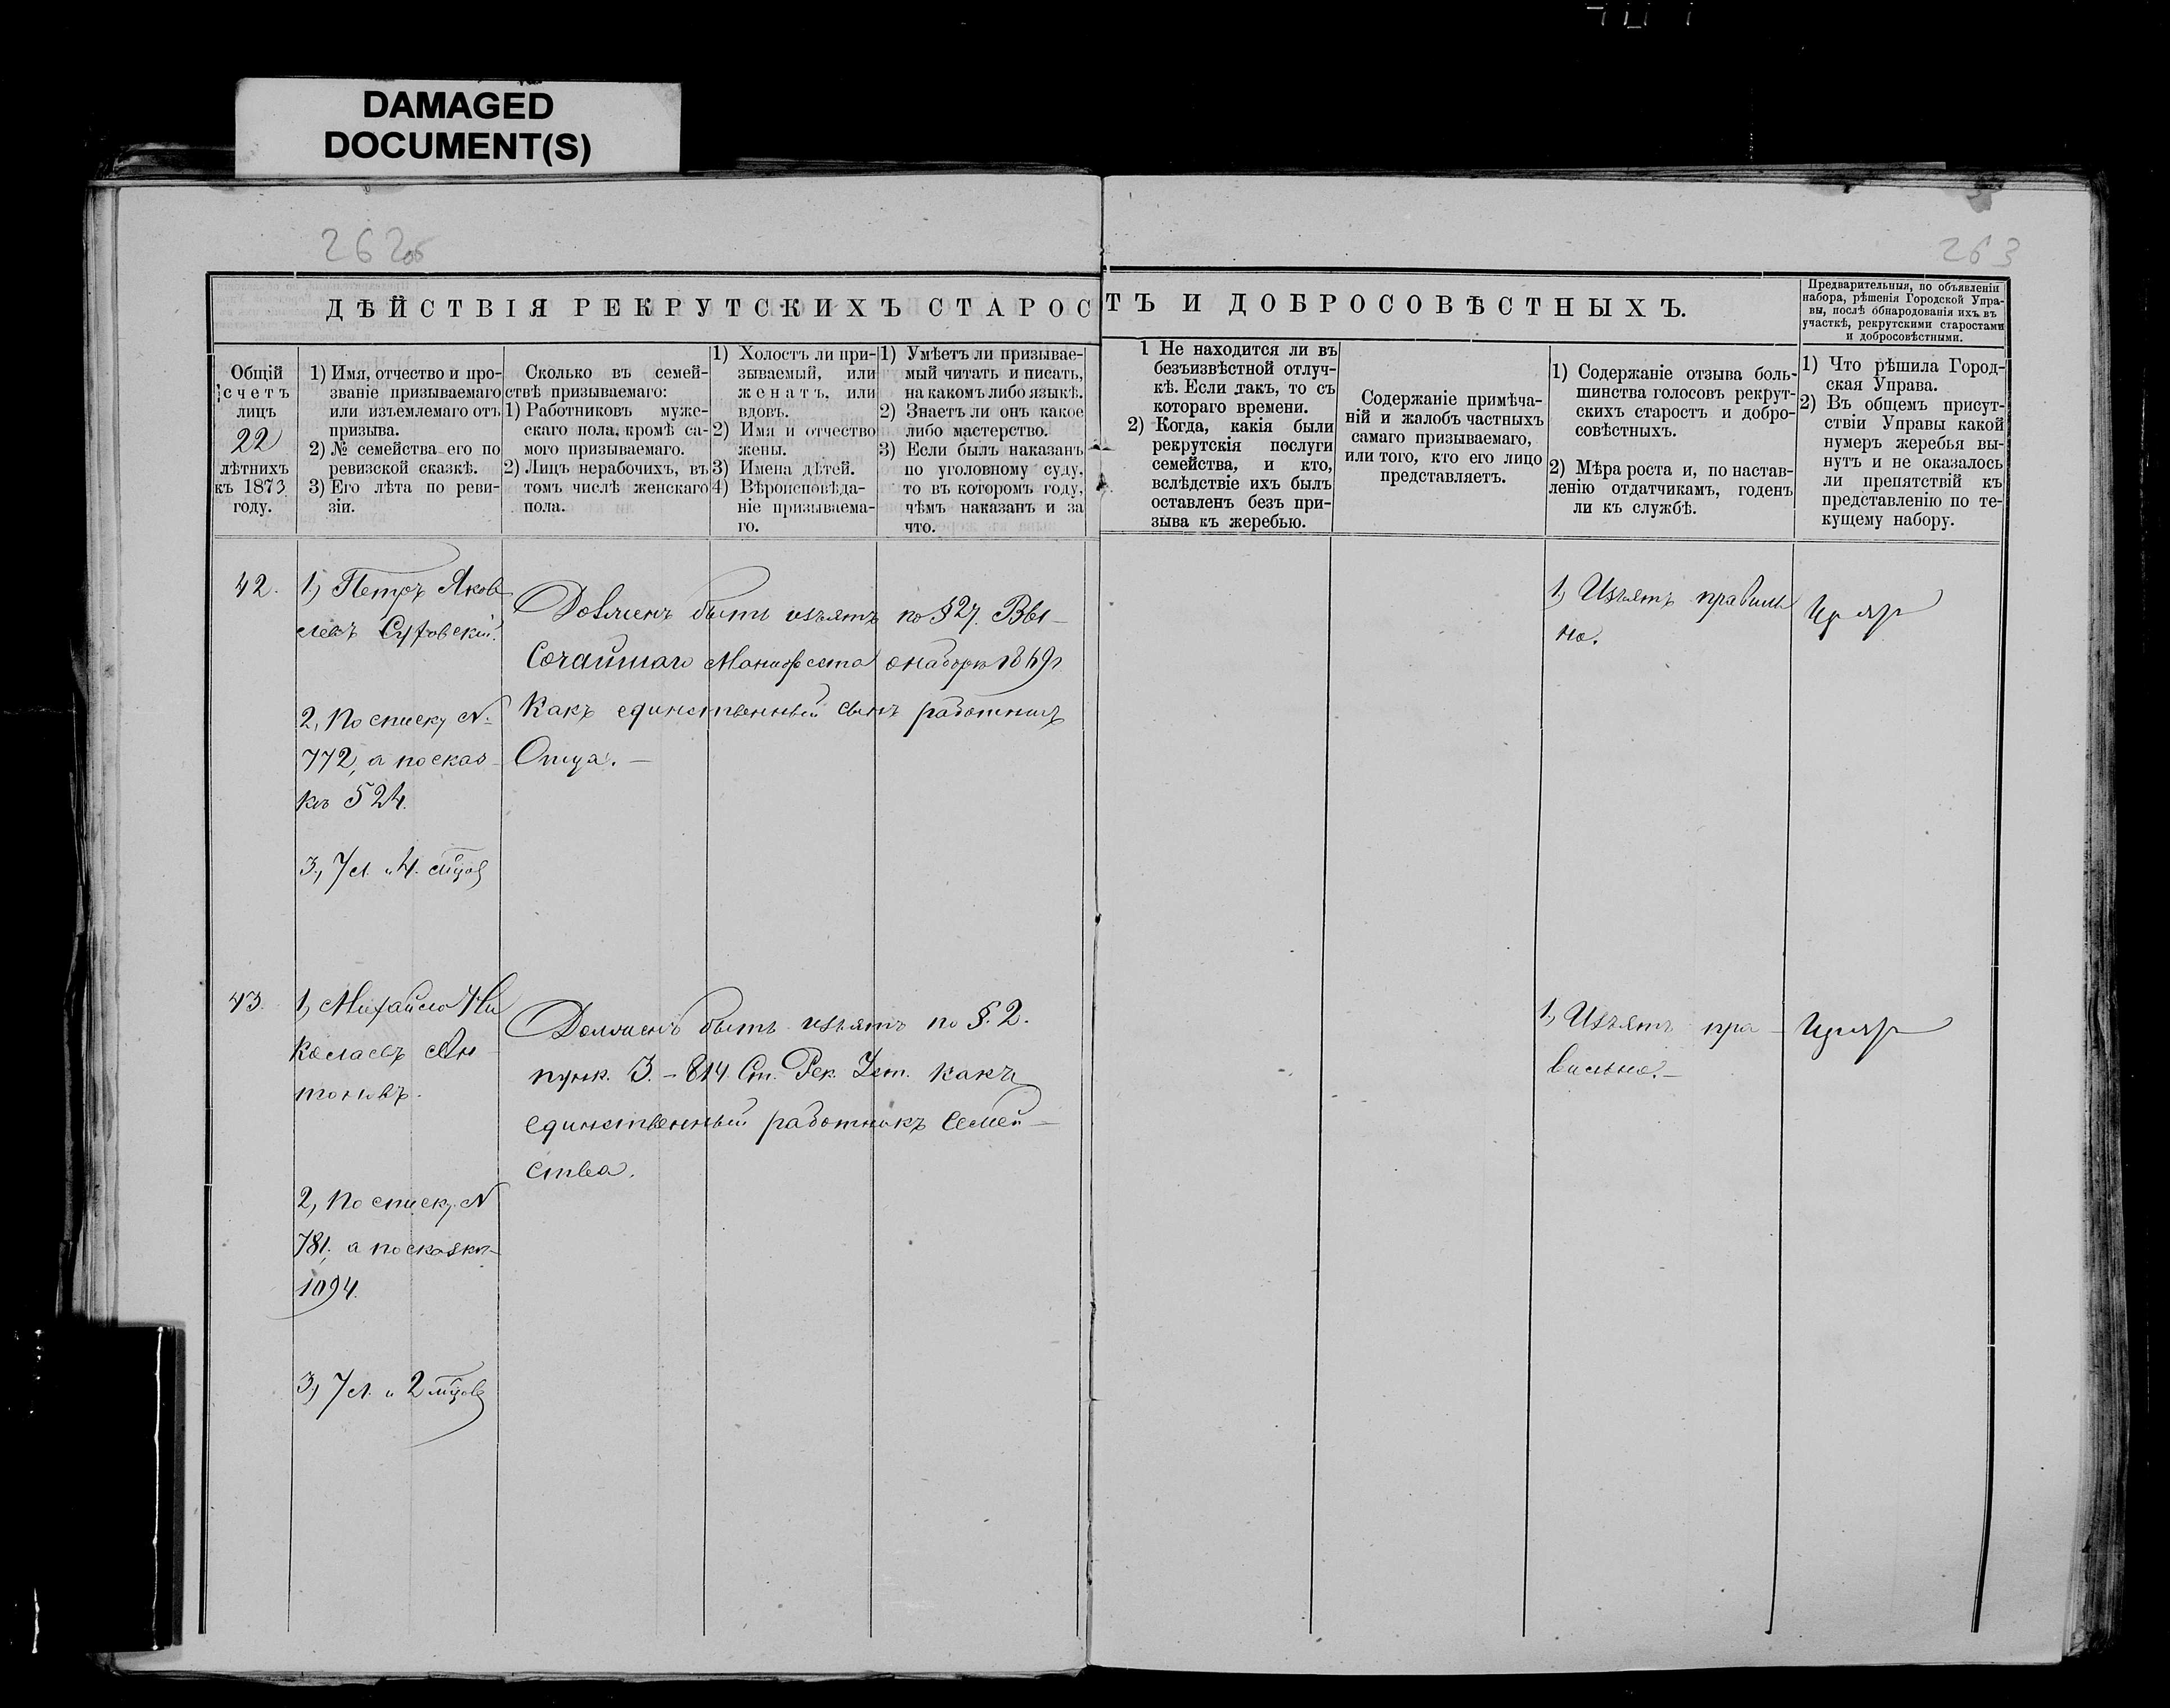 DAMAGED
DOCUMENT(S)
262об
263
ДѢЙСТВІЯ РЕКРУТСКИХЪ СТАРОСТЪ И ДОБРОСОВѢСТНЫХЪ.
Предварительныя, по объявленіи
набора, рѣшенія Городской Упра-
вы, послѣ обнародованія ихъ въ
участкѣ, рекрутскими старостами
и добросовѣстными.
Общій
счетъ
лицъ
22
лѣтнихъ
къ 1873
году.
1) Имя, отчество и про-
званіе призываемаго
или изъемлемаго отъ
призыва.
2) № семейства его по
ревизской сказкѣ.
3) Его лѣта по реви-
зіи.
Сколько въ семей-
ствѣ призываемаго:
1) Работниковъ муже-
скаго пола, кромѣ са-
мого призываемаго.
2) Лицъ нерабочихъ, въ
томъ числѣ женскаго
пола.
1) Холостъ ли при-
зываемый, или
женатъ, или
вдовъ.
2) Имя и отчество
жены.
3) Имена дѣтей.
4) Вѣроисповѣда-
ніе призываема-
го.
1) Умѣетъ ли призывае-
мый читать и писать,
на какомъ либо языкѣ.
2) Знаетъ ли онъ какое
либо мастерство.
3) Если былъ наказанъ
по уголовному суду,
то въ которомъ году,
чѣмъ наказанъ и за
что.
1 Не находится ли въ
безъизвѣстной отлуч-
кѣ. Если такъ, то съ
котораго времени.
2) Когда, какія были
рекрутскія послуги
семейства, и кто,
вслѣдствіе ихъ былъ
оставленъ безъ при-
зыва къ жеребью.
Содержаніе примѣча-
ній и жалобъ частныхъ
самаго призываемаго,
или того, кто его лицо
представляетъ.
1) Содержаніе отзыва боль-
шинства голосовъ рекрут-
скихъ старостъ и добро-
совѣстныхъ.
2) Мѣра роста и, по настав-
ленію отдатчикамъ, годенъ
ли къ службѣ.
1) Что рѣшила Город-
ская Управа.
2) Въ общемъ присут-
ствіи Управы какой
нумеръ жеребья вы-
нутъ и не оказалось
ли препятствій къ
представленію по те-
кущему набору.
42.
1) Петръ Яков
левъ Суховскій.
2, По списку №
772, а по сказ
кѣ 524.
3, 7 л. и 4. мѣсяц
Долженъ быть изъятъ по § 27. Вы-
сочайшаго Манифеста о наборѣ 1869 г.
Какъ единственный сынъ работникъ
Отца. —
1, Изъятъ правиль
но.
43.
1, Михайло Ни
колаевъ Ан
тоновъ.
2, По списку №
781, а по сказкѣ
1094.
3, 7 л. и 2 мѣсяц
Долженъ быть изъятъ по §. 2.
пунк. 3. – 814. Ст. Рек. Уст. какъ
единственный работникъ семей-
ства.
1, Изъятъ пра-
вильно. —